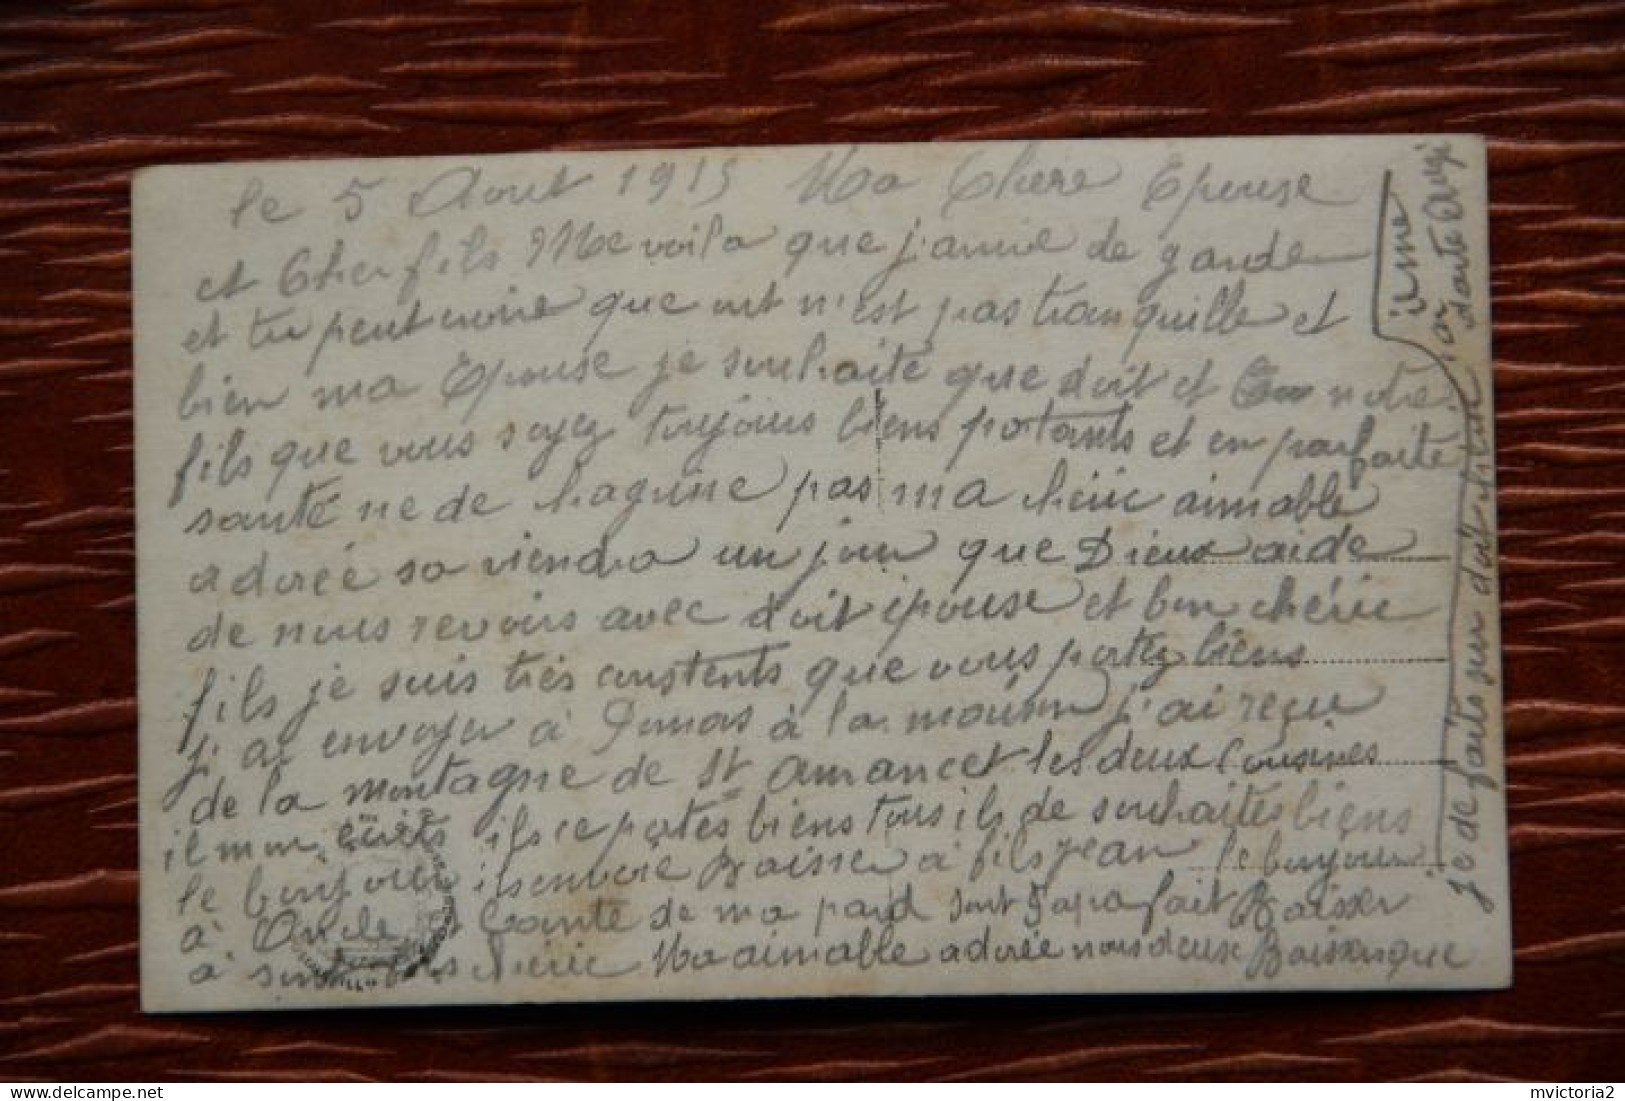 le 5 Aout 1915 Ma Chère Epouse
et Cher fils Me voila que j'arrive de garde
et tu peut croire que ont n'est pas tranquille et
bien ma Epouse je souhaite que doit et notre
fils que vous soyez toujours biens potants et en parfaite
santé ne de chagrine pas ma cheric aimable
adorée sa viendra un jour que Dieux aide
de nous revoirs avec doit épouse et bon chéric
fils je suis très constents que vous portez biens
j'ai envoyer à à la j'ai reçu
de la montagne de St Amancet les deux Cousines
il mon écrits ils ce portes biens tous ils de souhaites biens
le bonjour ils envoie Baisser à fils jean le bonjour
à Oncle Tante de ma pard sont Papa fait Baisser
à son fils cheric Ma aimable adorée nous deux Baisers que
je de faits sur doit cheric